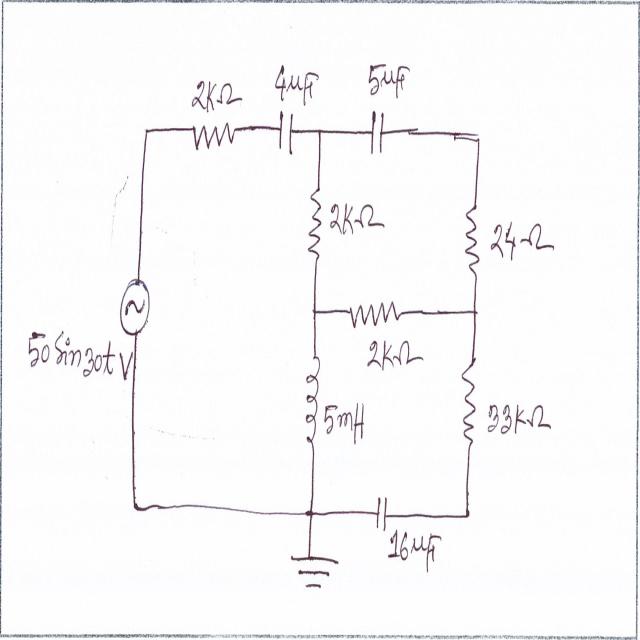 2KΩ
4μF
5μF
2KΩ
24Ω
50 Sin30t V
2KΩ
5mH
33KΩ
16μF